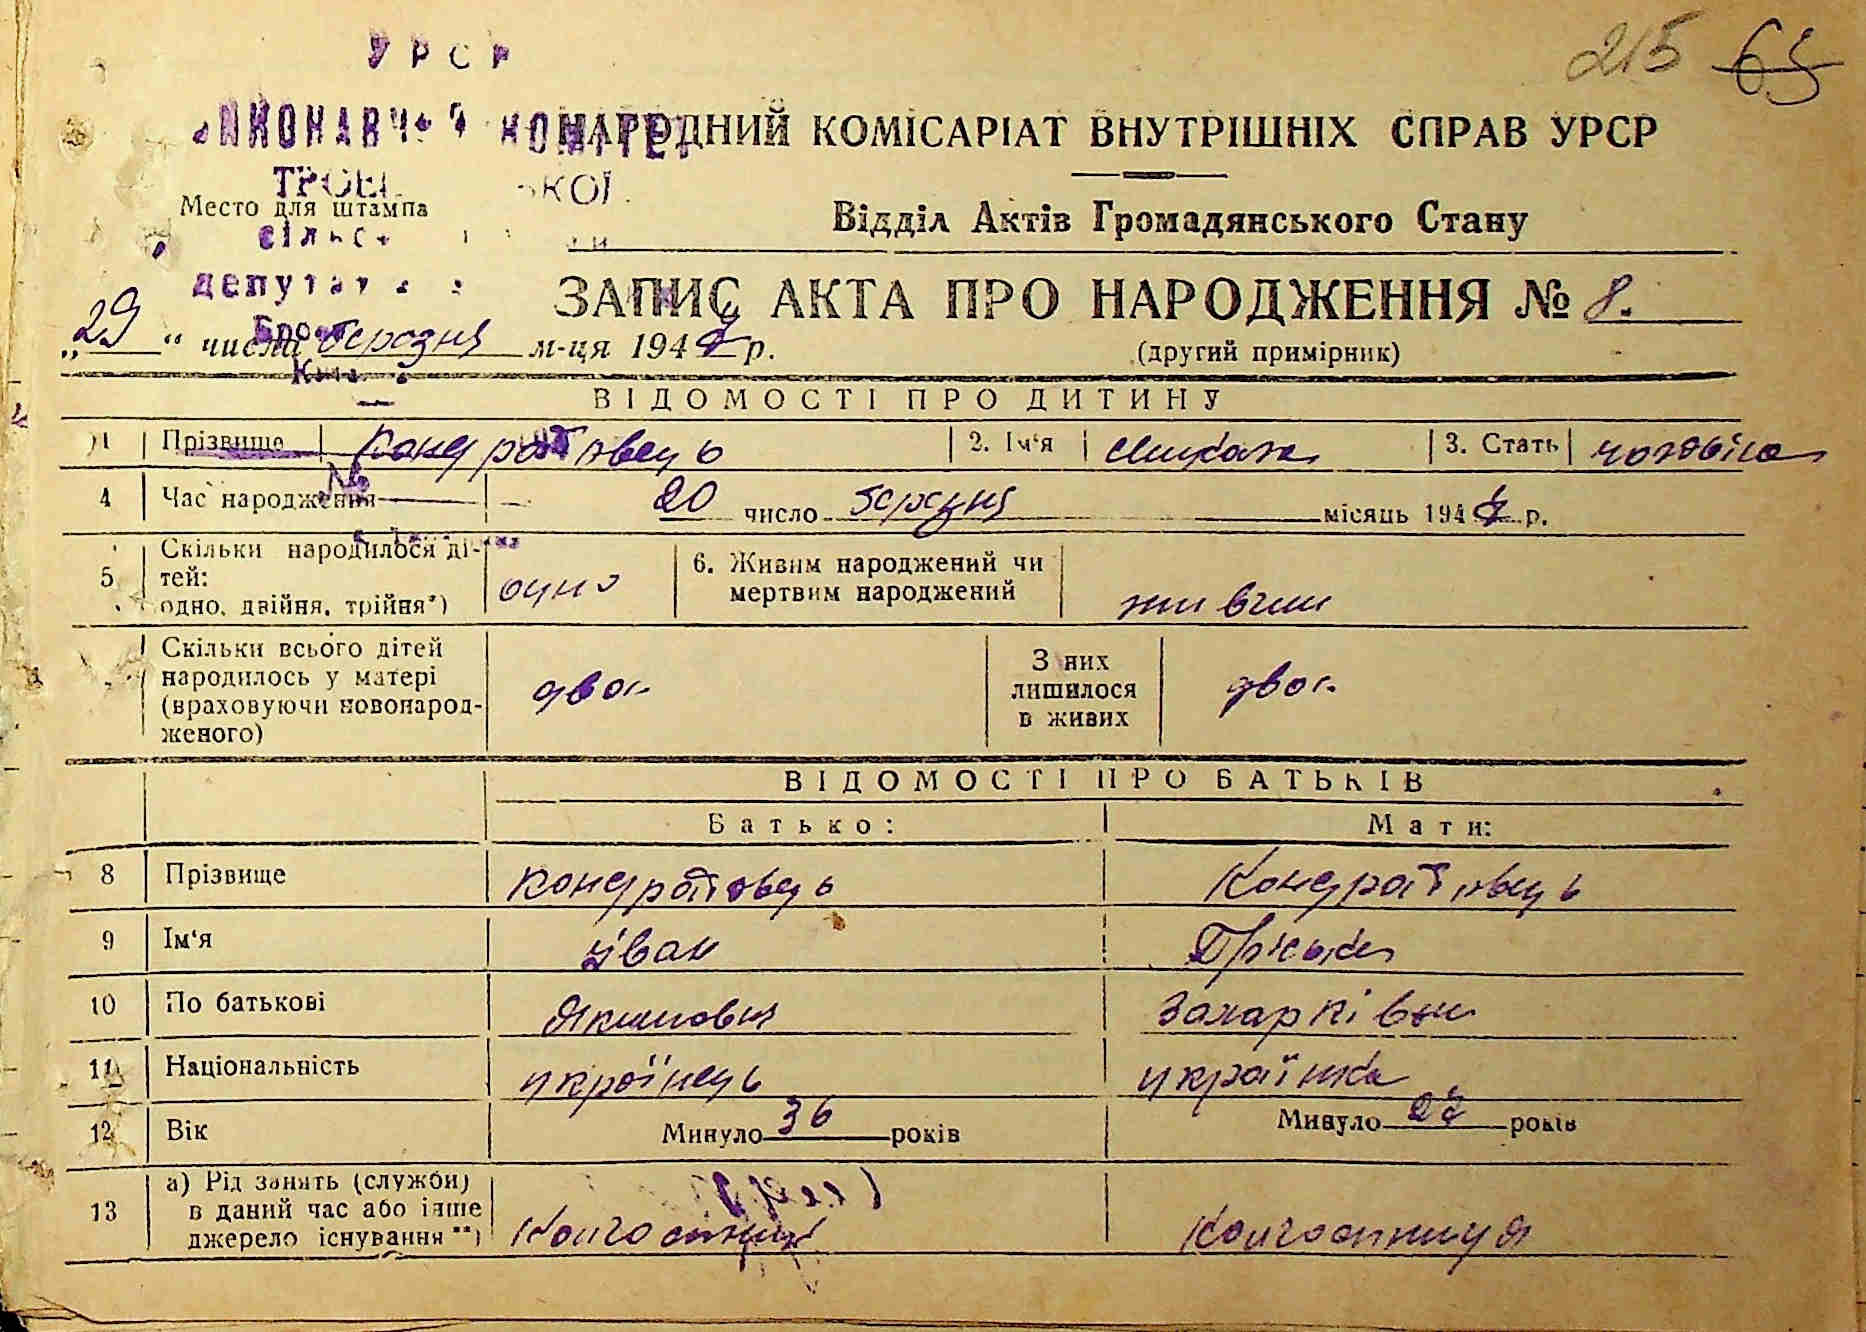 215 63
УРСР
ВИКОНАВЧИЙ КОМІТЕТ
НАРОДНИЙ КОМІСАРІАТ ВНУТРІШНІХ СПРАВ УРСР
ТРОЄ СЬКОЇ
Место для штампа
Відділ Актів Громадянського Стану
сільс
депутат
ЗАПИС АКТА ПРО НАРОДЖЕННЯ № 8.
Бро
„29“ числа березня м-ця 1947 р.
(другий примірник)
ВІДОМОСТІ ПРО ДИТИНУ
1 Прізвище Кондратовець 2. Ім‘я Микола 3. Стать чоловіча
№
4 Час народження 20 число березня місяць 1947 р.
5 Скільки народилося ді-
тей:
одно, двійня, трійня*) одно
6. Живим народжений чи
мертвим народжений живим
Скільки всього дітей
народилось у матері
(враховуючи новонарод-
женого) двоє
З них
лишилося
в живих двоє
ВІДОМОСТІ ПРО БАТЬКІВ
Батько: Мати:
8 Прізвище Кондратовець Кондратовець
9 Ім‘я Іван Пріська
10 По батькові Якимович Захарківна
11 Національність українець українка
12 Вік Минуло 36 років Минуло 27 років
13 а) Рід занять (служби)
в даний час або інше
джерело існування **) Колгоспник Колгоспниця